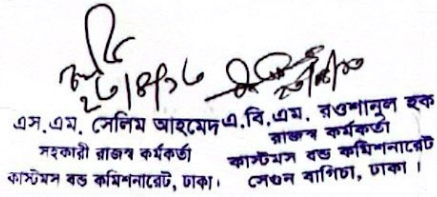 এস.এম. সেলিম আহমেদ
সহকারী রাজস্ব কর্মকর্তা
কাস্টমস বন্ড কমিশনারেট, ঢাকা।
এ.বি.এম. রওশানুল হক
রাজস্ব কর্মকর্তা
কাস্টমস বন্ড কমিশনারেট
সেগুন বাগিচা, ঢাকা।